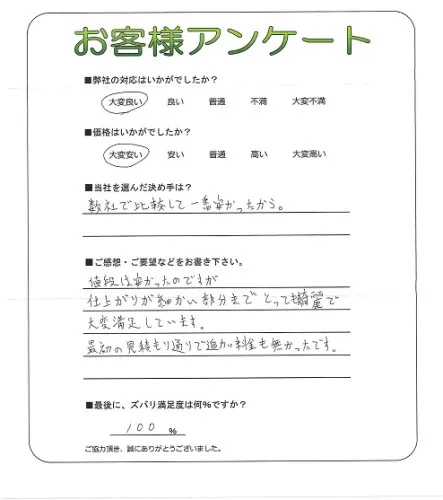 お客様アンケート
■弊社の対応はいかがでしたか?
大変良い 良い 普通 不満 大変不満
■価格はいかがでしたか?
大変安い 安い 普通 高い 大変高い
■当社を選んだ決め手は?
数社で比較して一番安かったから。
■ご感想・ご要望などをお書き下さい。
値段は安かったのですが
仕上がりが細かい部分までとっても綺麗で
大変満足しています。
最初の見積もり通りで追加料金も無かったです。
■最後に、ズバリ満足度は何%ですか?
100 %
ご協力頂き、誠にありがとうございました。